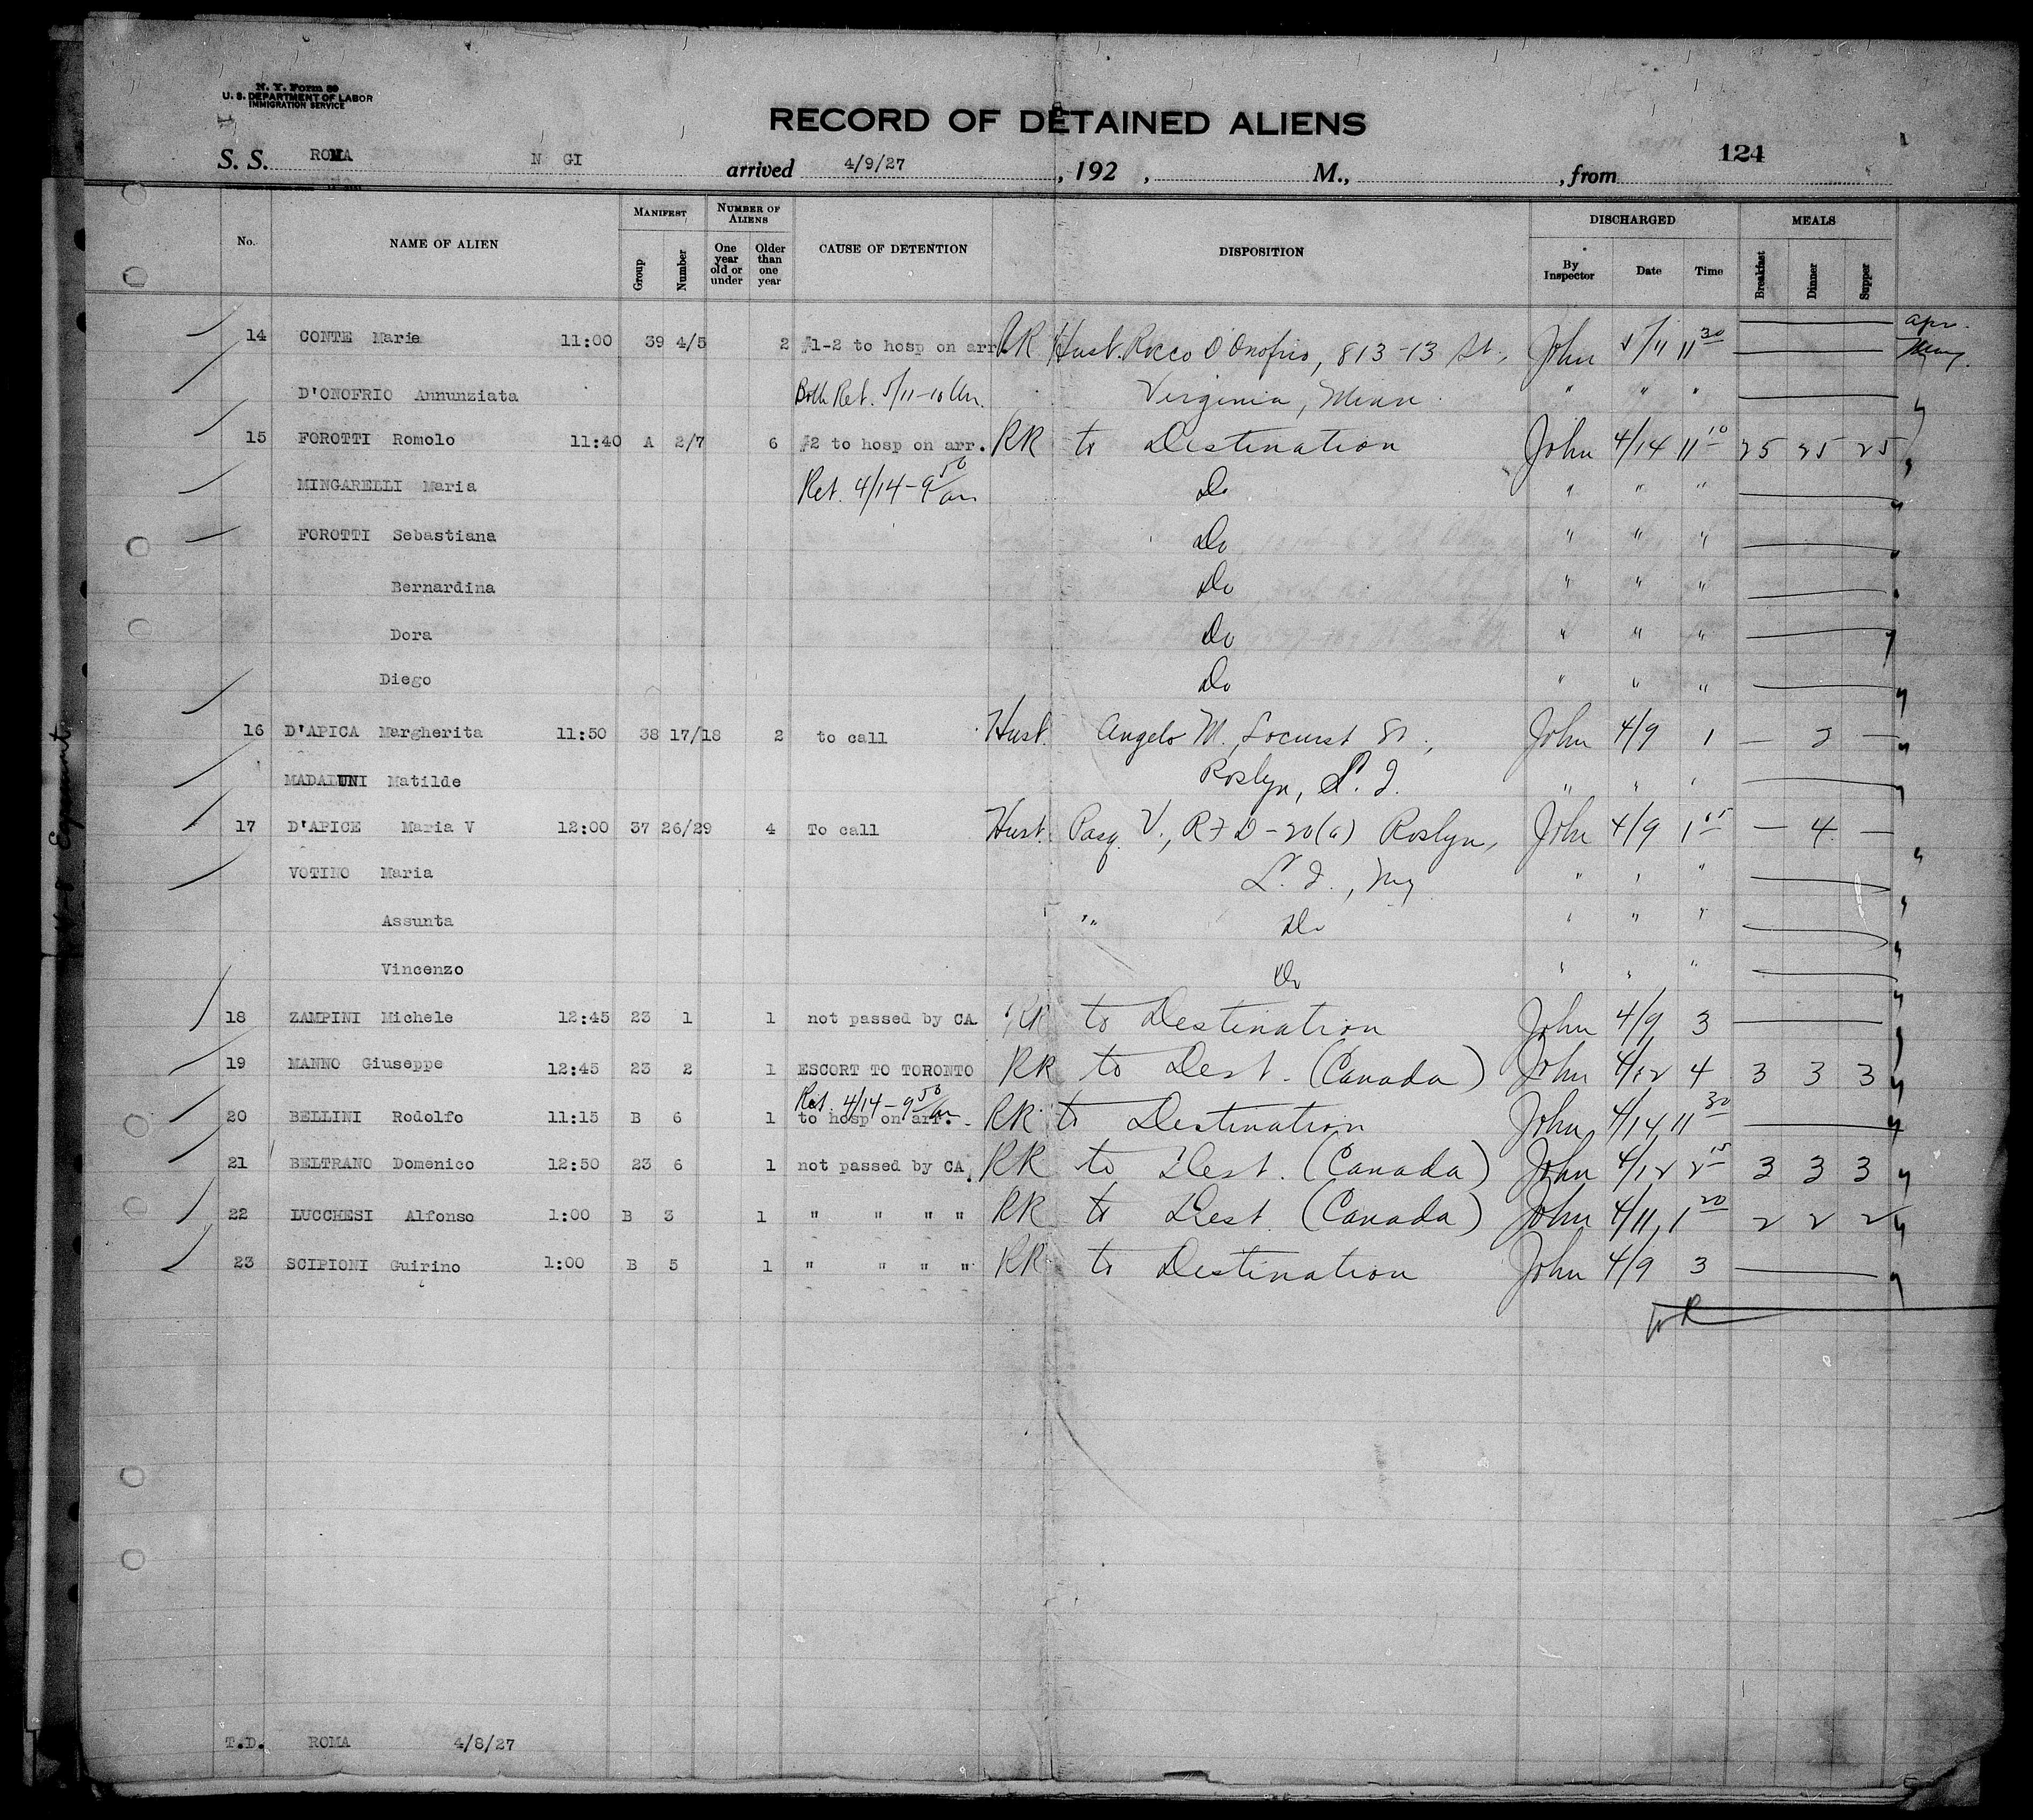 N. Y. Form 89
U. S. DEPARTMENT OF LABOR
IMMIGRATION SERVICE
RECORD OF DETAINED ALIENS
124
S. S. ROMA N GI arrived 4/9/27 , 192 , M., , from
No. NAME OF ALIEN MANIFEST Group Number NUMBER OF ALIENS One year old or under Older than one year CAUSE OF DETENTION DISPOSITION DISCHARGED By Inspector Date Time MEALS Breakfast Dinner Supper
apr.
14 CONTE Maria 11:00 39 4/5 2 #1-2 to hosp on arr. RR Hust. Rocco D Onofrio, 813-13 St., John 5/11 11 30 May.
D'ONOFRIO Annunziata Both Ret. 5/11-10 Am. Virginia, Minn. " " "
15 FOROTTI Romolo 11:40 A 2/7 6 #2 to hosp on arr. RR to Destination John 4/14 11 10 25 25 25
MINGARELLI Maria Ret. 4/14-9 50 am Do " " "
FOROTTI Sebastiana Do " " "
Bernardina Do " " "
Dora Do " " "
Diego Do " " "
16 D'APICA Margherita 11:50 38 17/18 2 to call Hust. Angelo M. Locust St., John 4/9 1 — 2 —
Matilde Roslyn, L. I. " " "
17 D'APICE Maria V 12:00 37 26/29 4 To call Hust. Pasq. V., RFD-20(a) Roslyn, John 4/9 1 15 — 4 —
VOTINO Maria L. I., Ny " " "
Assunta " Do " " "
Vincenzo Do " " "
18 ZAMPINI Michele 12:45 23 1 1 not passed by CA RR to Destination John 4/9 3
19 MANNO Giuseppe 12:45 23 2 1 ESCORT TO TORONTO RR to Dest. (Canada) John 4/12 4 3 3 3
Ret 4/14-9 50 am
20 BELLINI Rodolfo 11:15 B 6 1 to hosp on arr. RR to Destination John 4/14 11 30
21 BELTRANO Domenico 12:50 23 6 1 not passed by CA. RR to Dest. (Canada) John 4/12 2 15 3 3 3
22 LUCCHESI Alfonso 1:00 B 3 1 " " " " RR to Dest. (Canada) John 4/11 1 20 2 2 2
23 SCIPIONI Guirino 1:00 B 5 1 " " " " RR to Destination John 4/9 3
T.D. ROMA 4/8/27